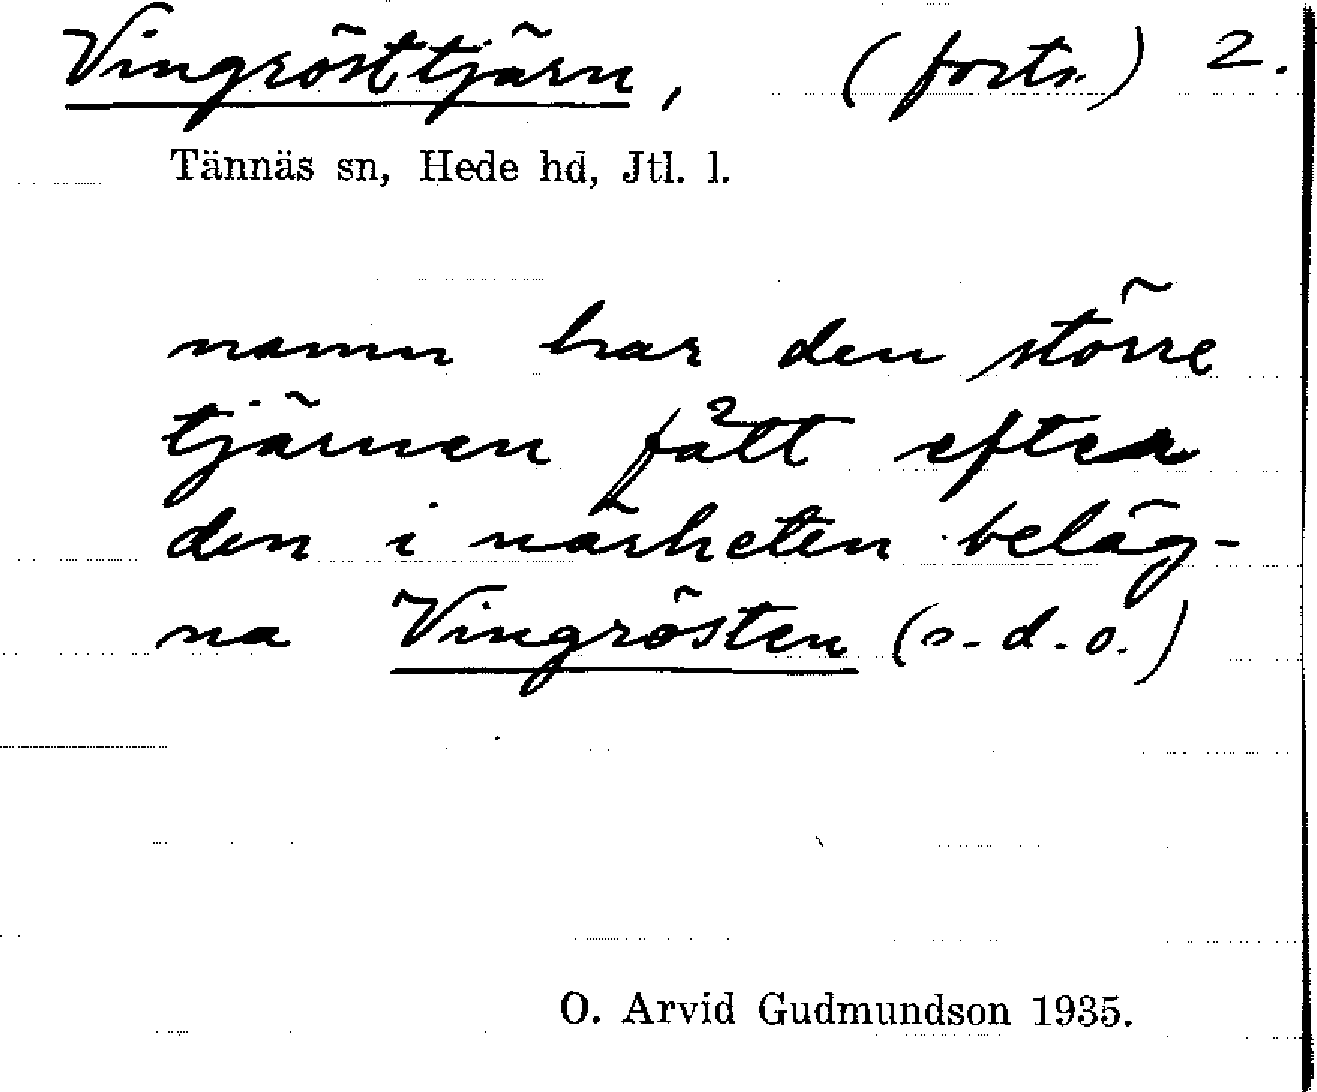 Vingrösttjärn, (forts.) 2.
Tännäs sn, Hede hd, Jtl. l.
namn har den större
tjärnen fått efter
den i närheten beläg-
na Vingrösten (s.d.o.)
O. Arvid Gudmundson 1935.